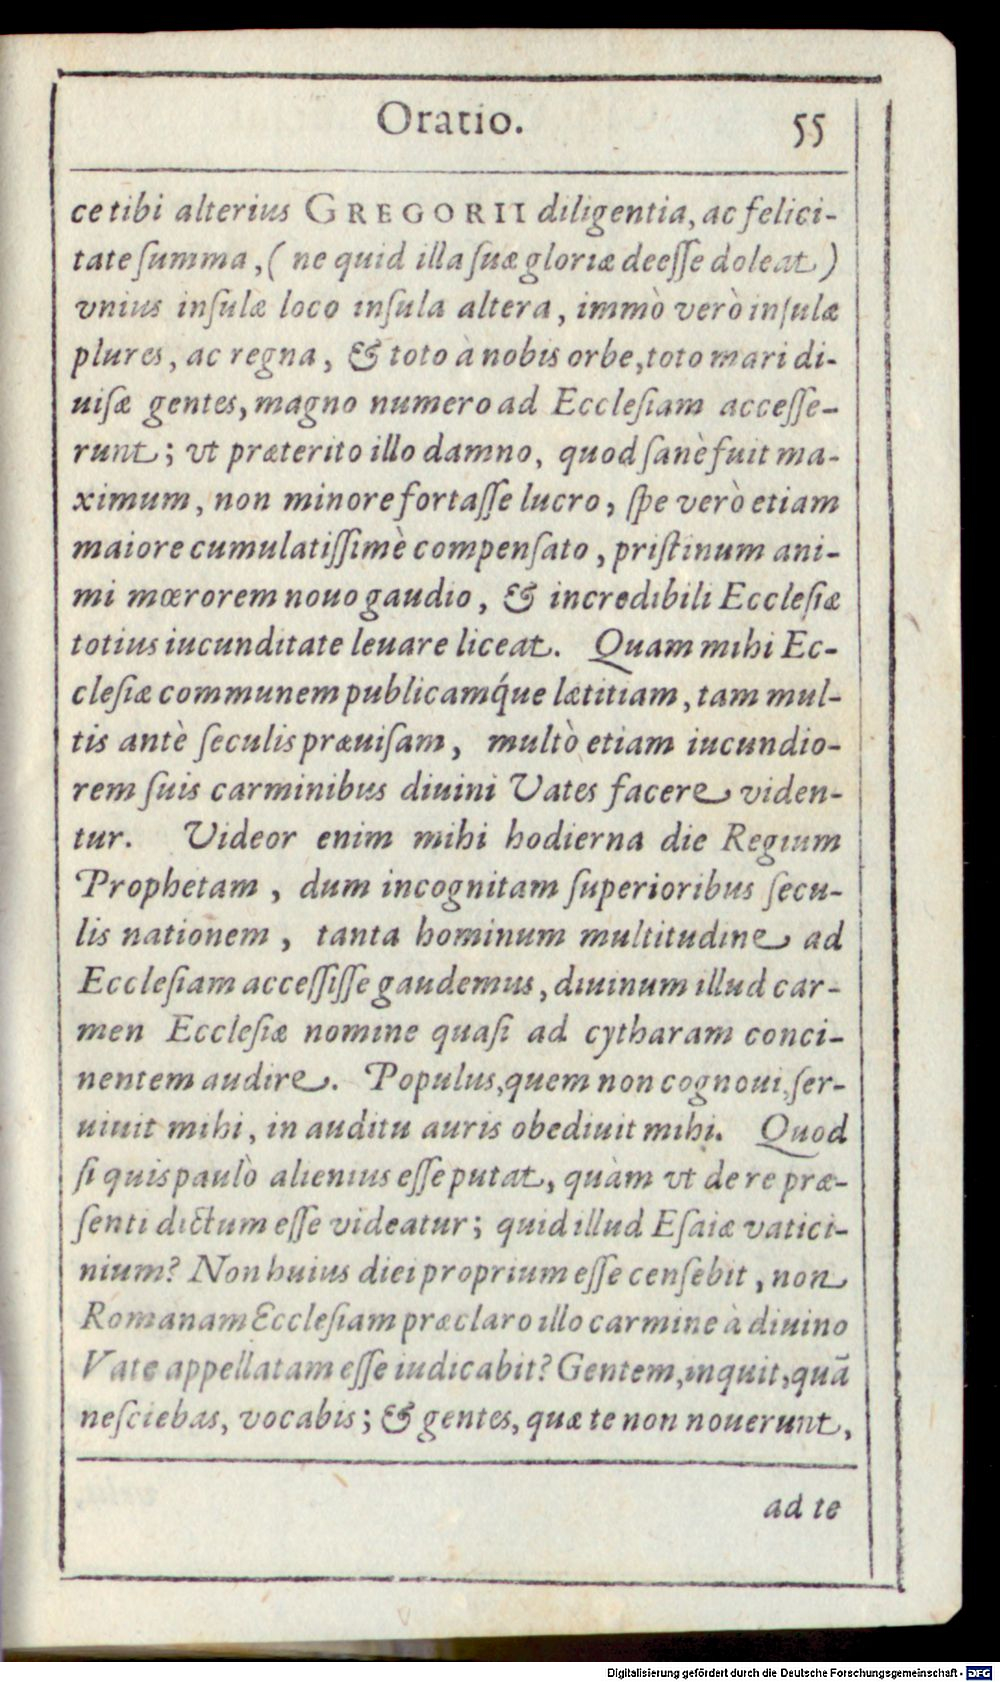 Oratio. 55
ce tibi alterius GREGORII diligentia, ac felici-
tate ſumma, ( ne quid illa ſuæ gloriæ deeſſe doleat )
vnius inſulæ loco inſula altera, immò verò inſulæ
plures, ac regna, & toto à nobis orbe, toto mari di-
uiſæ gentes, magno numero ad Eccleſiam acceſſe-
runt; vt præterito illo damno, quod ſanè fuit ma-
ximum, non minore fortaſſe lucro, ſpe verò etiam
maiore cumulatiſſimè compenſato, priſtinum ani-
mi mœrorem nouo gaudio, & incredibili Eccleſiæ
totius iucunditate leuare liceat. Quam mihi Ec-
cleſiæ communem publicamq́ue lætitiam, tam mul-
tis antè ſeculis præuiſam, multò etiam iucundio-
rem ſuis carminibus diuini Vates facere viden-
tur. Videor enim mihi hodierna die Regium
Prophetam, dum incognitam ſuperioribus ſecu-
lis nationem, tanta hominum multitudine ad
Eccleſiam acceſſiſſe gaudemus, diuinum illud car-
men Eccleſiæ nomine quaſi ad cytharam conci-
nentem audire. Populus, quem non cognoui, ſer-
uiuit mihi, in auditu auris obediuit mihi. Quod
ſi quis paulò alienius eſſe putat, quàm vt de re præ-
ſenti dictum eſſe videatur; quid illud Eſaiæ vatici-
nium? Non huius diei proprium eſſe cenſebit, non
Romanam Eccleſiam præclaro illo carmine à diuino
Vate appellatam eſſe iudicabit? Gentem, inquit, quā
neſciebas, vocabis; & gentes, quæ te non nouerunt,
ad te
Digitalisierung gefördert durch die Deutsche Forschungsgemeinschaft - DFG